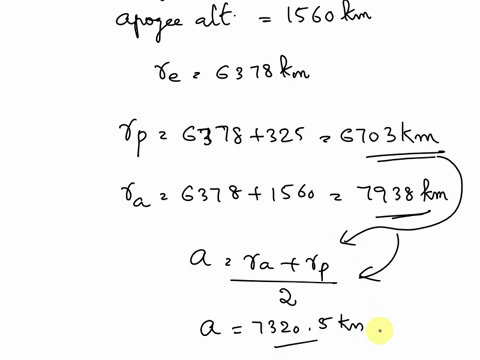 apogee alt. = 1560 km
re = 6378 km
rp = 6378 + 325 = 6703 km
ra = 6378 + 1560 = 7938 km
a = ra + rp
2
a = 7320.5 km